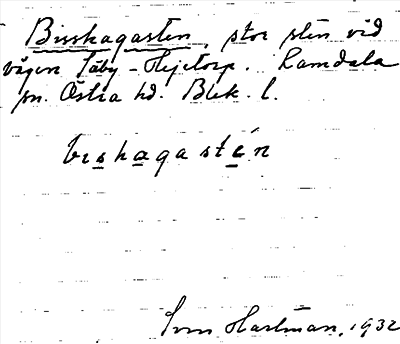 Bisshagasten, stor sten vid
vägen Täby - Hejetorp. Ramdala
sn. Östra hd. Blek. l.
bɩshagastén
Sven Hartman, 1932